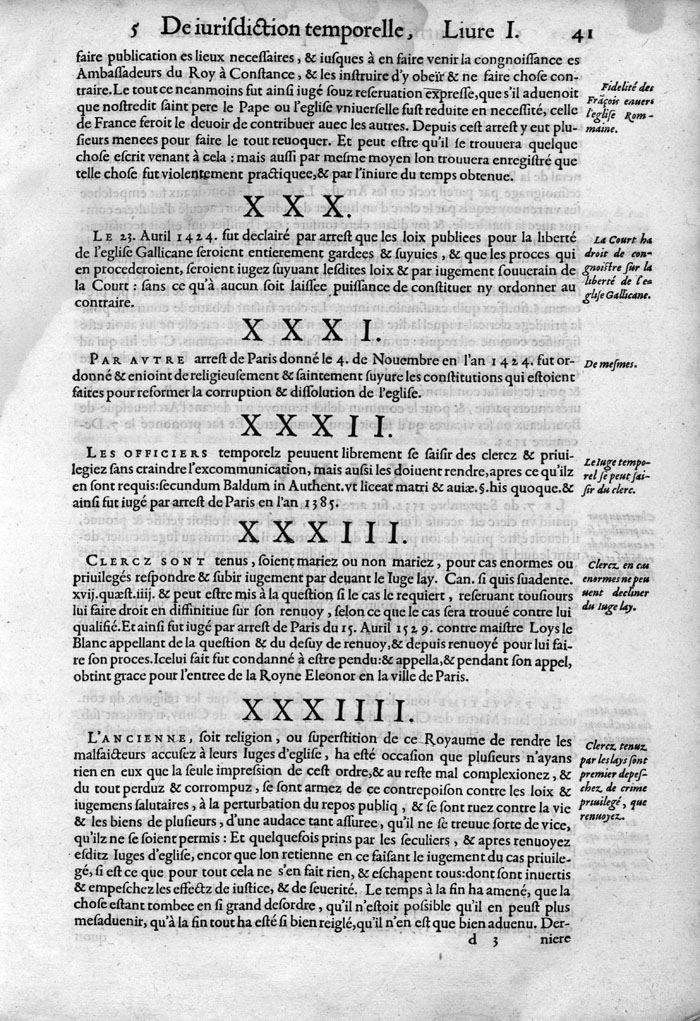 5 De iurisdiction temporelle, Liure I. 41
faire publication es lieux necessaires, & iusques à en faire venir la congnoissance es
Ambassadeurs du Roy à Constance, & les instruire d'y obeïr & ne faire chose con-
traire. Le tout ce neanmoins fut ainsi iugé souz reseruation expresse, que s'il aduenoit
que nostredit saint pere le Pape ou l'eglise vniuerselle fust reduite en necessité, celle
de France feroit le deuoir de contribuer auec les autres. Depuis cest arrest y eut plu-
sieurs menees pour faire le tout reuoquer. Et peut estre qu'il se trouuera quelque
chose escrit venant à cela : mais aussi par mesme moyen lon trouuera enregistré que
telle chose fut violentement practiquee, & par l'iniure du temps obtenue.
Fidelité des
Frãçois enuers
l'eglise Rom-
maine.
XXX.
LE 23. Auril 1424. fut declairé par arrest que les loix publiees pour la liberté
de l'eglise Gallicane seroient entierement gardees & suyuies, & que les proces qui
en procederoient, seroient iugez suyuant lesdites loix & par iugement souuerain de
la Court : sans ce qu'à aucun soit laissee puissance de constituer ny ordonner au
contraire.
La Court ha
droit de con-
gnoistre sur la
liberté de l'e-
glise Gallicane.
XXXI.
PAR AVTRE arrest de Paris donné le 4. de Nouembre en l'an 1424. fut or-
donné & enioint de religieusement & saintement suyure les constitutions qui estoient
faites pour reformer la corruption & dissolution de l'eglise.
De mesmes.
XXXII.
LES OFFICIERS temporelz peuuent librement se saisir des clercz & priui-
legiez sans craindre l'excommunication, mais aussi les doiuent rendre, apres ce qu'ilz
en sont requis: secundum Baldum in Authent. vt liceat matri & auiæ. §. his quoque. &
ainsi fut iugé par arrest de Paris en l'an 1385.
Le Iuge tempo-
rel se peut sai-
sir du clerc.
XXXIII.
CLERCZ SONT tenus, soient mariez ou non mariez, pour cas enormes ou
priuilegés respondre & subir iugement par deuant le Iuge lay. Can. si quis suadente.
xvij. quæst. iiij. & peut estre mis à la question si le cas le requiert, reseruant tousiours
lui faire droit en diffinitiue sur son renuoy, selon ce que le cas sera trouué contre lui
qualifié. Et ainsi fut iugé par arrest de Paris du 15. Auril 1529. contre maistre Loys le
Blanc appellant de la question & du desuy de renuoy, & depuis renuoyé pour lui fai-
re son proces. Icelui fait fut condanné à estre pendu: & appella, & pendant son appel,
obtint grace pour l'entree de la Royne Eleonor en la ville de Paris.
Clercz, en cas
enormes ne peu
uent decliner
du Iuge lay.
XXXIIII.
L'ANCIENNE, soit religion, ou superstition de ce Royaume de rendre les
malfaicteurs accusez à leurs Iuges d'eglise, ha esté occasion que plusieurs n'ayans
rien en eux que la seule impression de cest ordre, & au reste mal complexionez, &
du tout perduz & corrompuz, se sont armez de ce contrepoison contre les loix &
iugemens salutaires, à la perturbation du repos publiq, & se sont ruez contre la vie
& les biens de plusieurs, d'une audace tant assuree, qu'il ne se treuue sorte de vice,
qu'ilz ne se soient permis : Et quelquefois prins par les seculiers, & apres renuoyez
esditz Iuges d'eglise, encor que lon retienne en ce faisant le iugement du cas priuile-
gé, si est ce que pour tout cela ne s'en fait rien, & eschapent tous: dont sont inuertis
& empeschez les effectz de iustice, & de seuerité. Le temps à la fin ha amené, que la
chose estant tombee en si grand desordre, qu'il n'estoit possible qu'il en peust plus
mesaduenir, qu'à la fin tout ha esté si bien reiglé, qu'il n'en est que bien aduenu. Der-
Clercz, tenuz
par les lays sont
premier depes-
chez, de crime
priuilegé, que
renuoyez.
d 3 niere